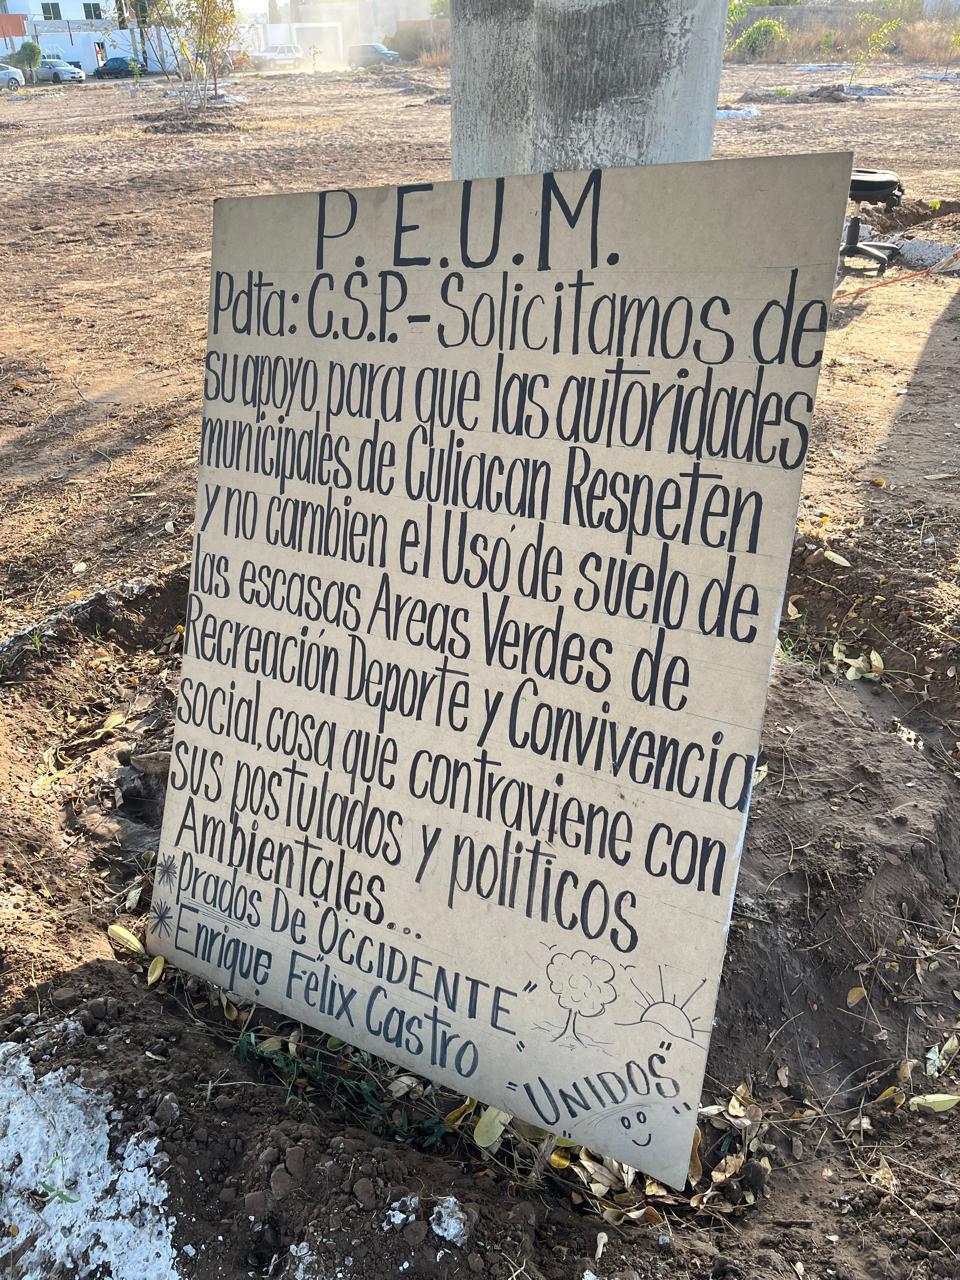 P.E.U.M.
Pdta: C.S.P.- Solicitamos de
su apoyo para que las autoridades
municipales de Culiacan Respeten
y no cambien el Uso de suelo de
las escasas Areas Verdes de
Recreación Deporte y Convivencia
social, cosa que contraviene con
sus postulados y politicos
Ambientales...
* Prados De "OCCIDENTE"
* Enrique Félix Castro"
"UNIDOS"